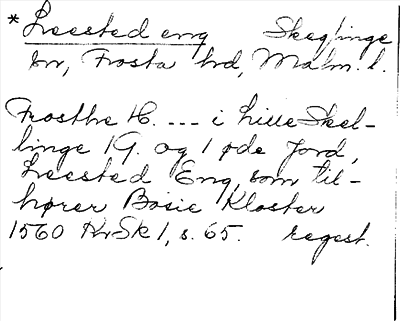 * Leested eng Skeglinge
sn, Frosta hd, Malm. l.
Frosthe H. --- i Lille Skel-
linge 1 G. og 1 øde Jord,
Leested Eng, som til-
hører Bosie Kloster
1560 KrSk 1, s. 65. regest.